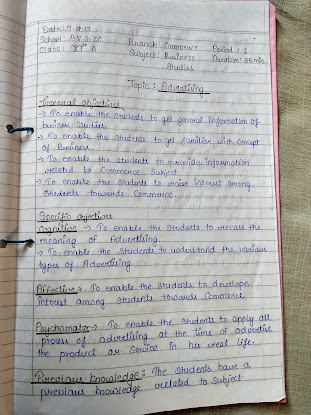 Date:
School:
Class: XI th A
Branch: Commerce
Subject: Business Studies
Period:
Duration: 35 min
Topic: Advertising
General Objectives
→ To enable the students to get general information of
business studies
→ To enable the students to get familiar with concept
of Business
→ To enable the students to provide information
related to Commerce Subject
→ To enable the students to raise interest among
Students towards Commerce
Specific objectives
Cognitive → To enable the students to
meaning of Advertising.
→ To enable the students to understand the various
types of Advertising
Affective → To enable the students to develop
interest among students towards Commerce
Psychomotor → To enable the students to apply all
process of advertising at the time of advertise
the product or service in his real life.
Previous knowledge: The students have a
previous knowledge related to subject